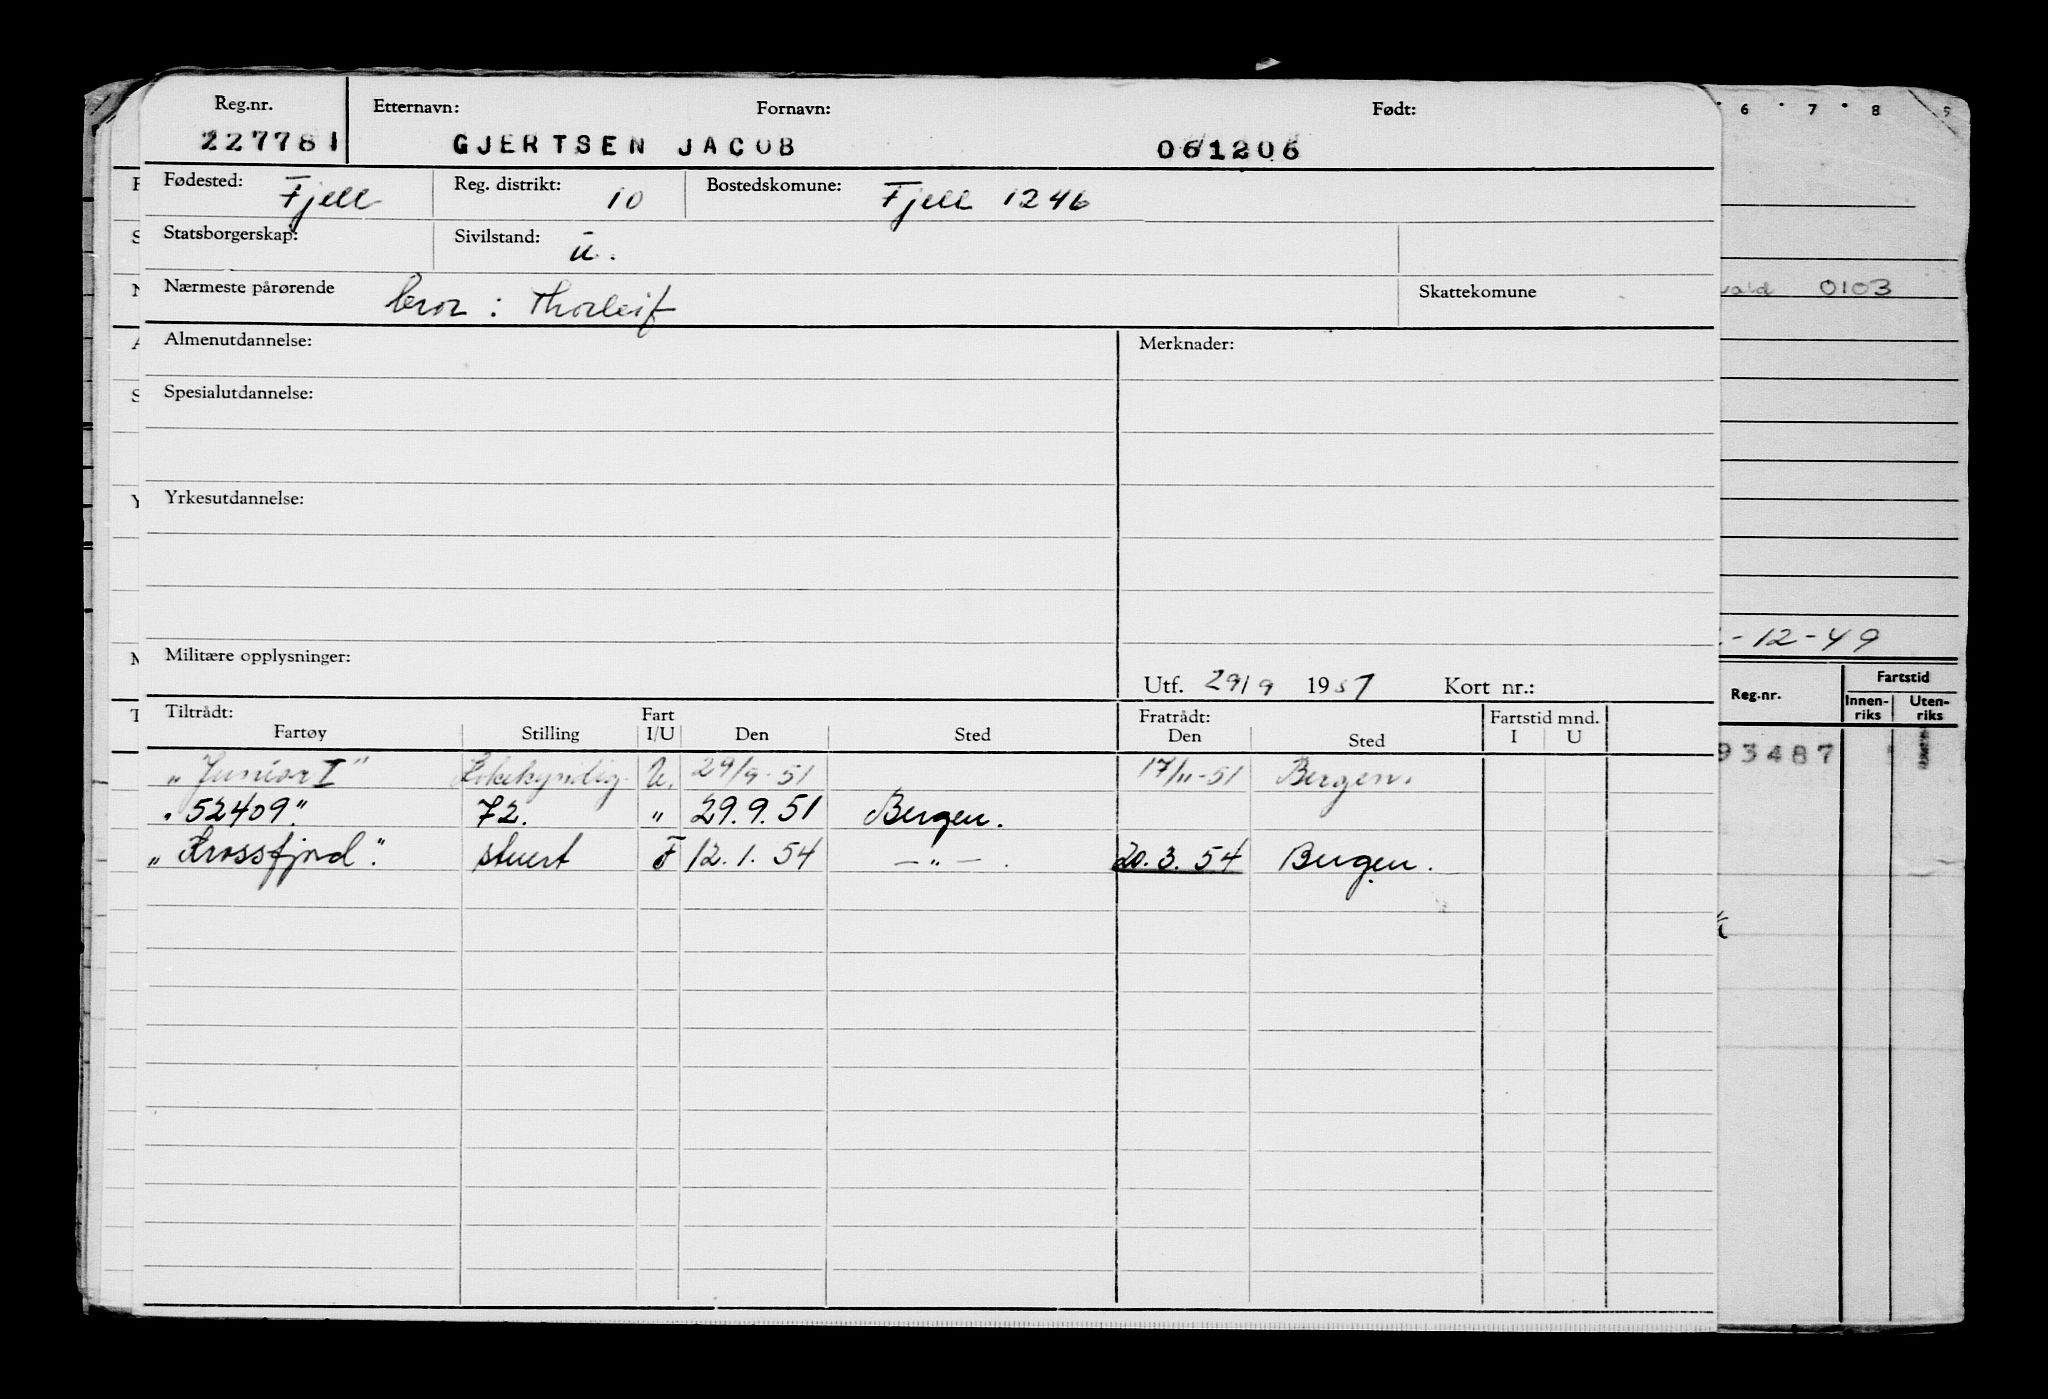 Reg.nr. Etternavn: Fornavn: Født:
227781 GJERTSEN JACOB 061206
Fødested: Fjell Reg. distrikt: 10 Bostedskomune: Fjell 1246
Statsborgerskap: Sivilstand: u.
Nærmeste pårørende bror: Thorleif Skattekomune
Almenutdannelse: Merknader:
Spesialutdannelse:
Yrkesutdannelse:
Militære opplysninger:
Utf. 29/9 1951 Kort nr.:
Tiltrådt: Fart Fratrådt: Fartstid mnd.
Fartøy Stilling I/U Den Sted Den Sted I U
"Junior I" Kokekyndig U. 29/9-51 17/11-51 Bergen.
"52409". 72. " 29.9.51 Bergen.
"Krossfjord". stuert F 12.1.54 —"— 20.3.54 Bergen.
6 7 8 9
0103
-12-49
Reg.nr. Fartstid
Innen-riks Uten-riks
93487